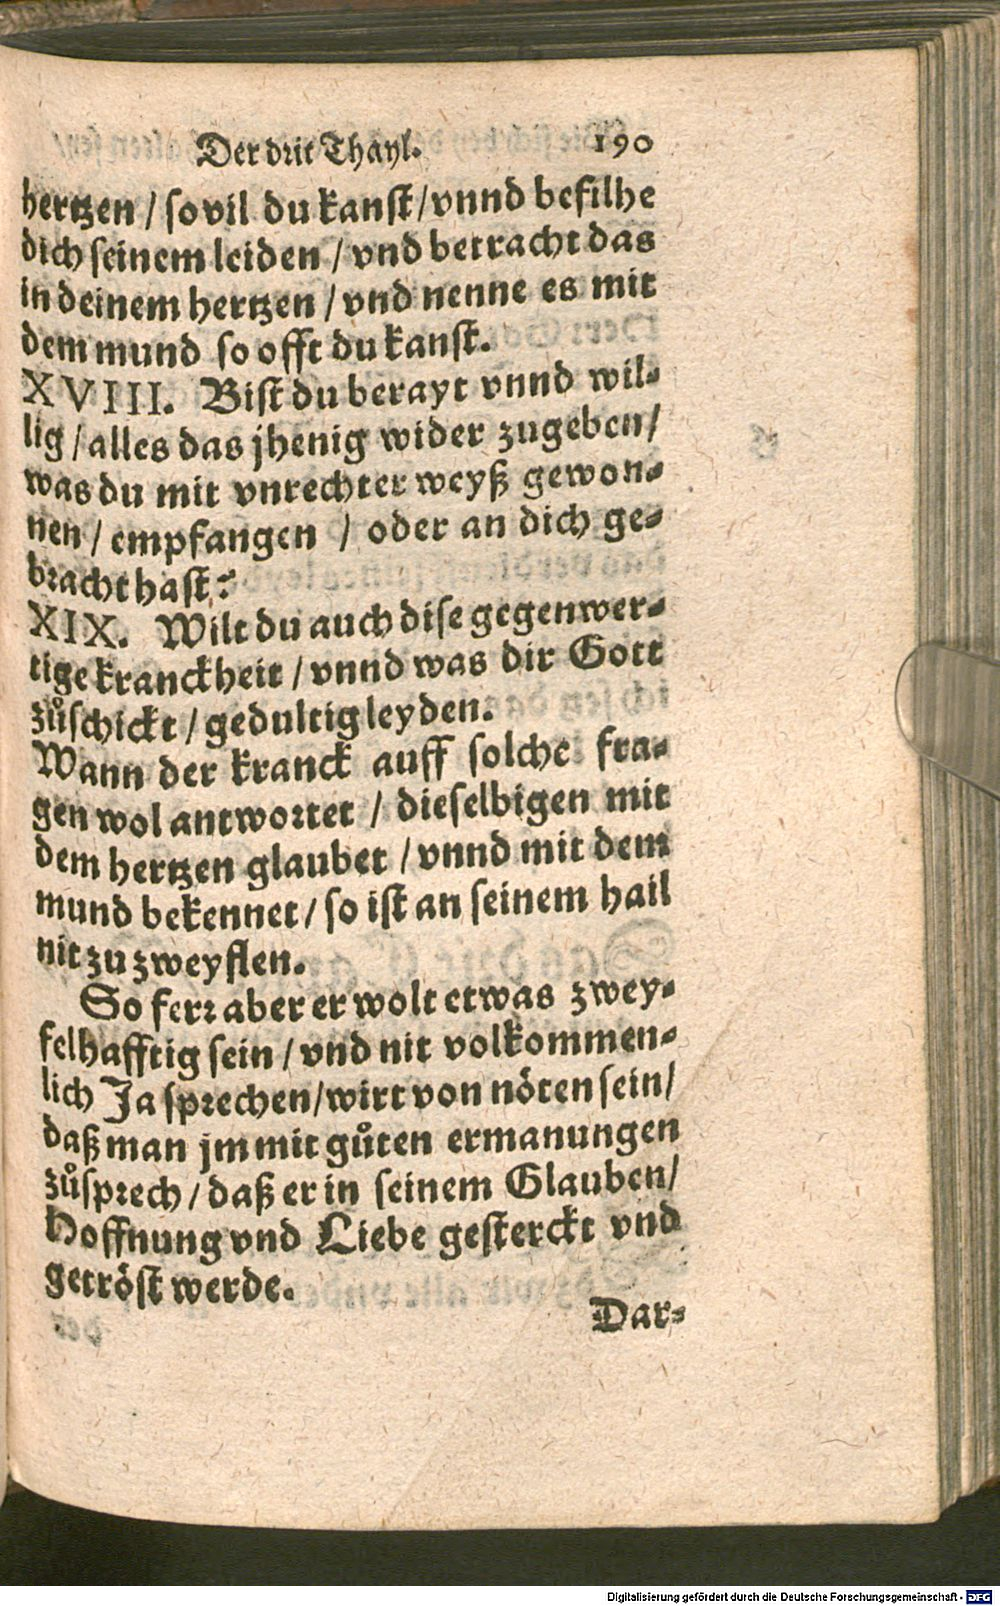 Der drit Thayl. 190
hertzen / so vil du kanst / vnnd befilhe
dich seinem leiden / vnd betracht das
in deinem hertzen / vnd nenne es mit
dem mund so offt du kanst.
XVIII. Bist du berayt vnnd wil-
lig / alles das jhenig wider zugeben /
was du mit vnrechter weyß gewon-
nen / empfangen / oder an dich ge-
bracht hast?
XIX. Wilt du auch dise gegenwer-
tige kranckheit / vnnd was dir Gott
zůschickt / gedultig leyden.
Wann der kranck auff solche fra-
gen wol antwortet / dieselbigen mit
dem hertzen glaubet / vnnd mit dem
mund bekennet / so ist an seinem hail
nit zu zweyflen.
So ferr aber er wolt etwas zwey-
felhafftig sein / vnd nit volkommen-
lich Ja sprechen / wirt von nöten sein /
daß man jm mit gůten ermanungen
zůsprech / daß er in seinem Glauben /
Hoffnung vnd Liebe gesterckt vnd
getröst werde.
Dar-
Digitalisierung gefördert durch die Deutsche Forschungsgemeinschaft - DFG